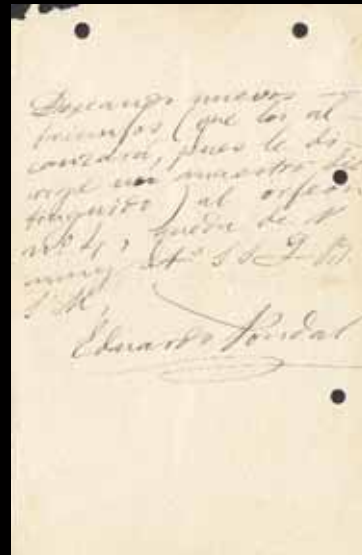 Deseando nuevos
triunfos (que los al
canzará, pues le di
rige un maestro dis
tinguido) al orfeon
nº 4, queda de V.
muy atº S. S. Q. B.
S. M.
Eduardo Pondal